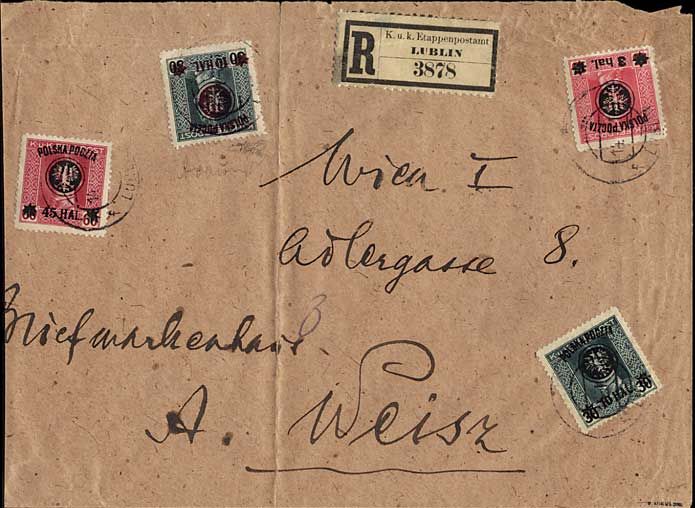 K. u. k. Etappenpostamt
R LUBLIN
3878
30 10 HAL. 30
POLSKA POCZTA
3 hal.
POLSKA POCZTA
POLSKA POCZTA
45 HAL.
60 60
Wien I
Adlergasse 8.
Briefmarkenhaus
A. Weisz
POLSKA POCZTA
30 10 HAL. 30